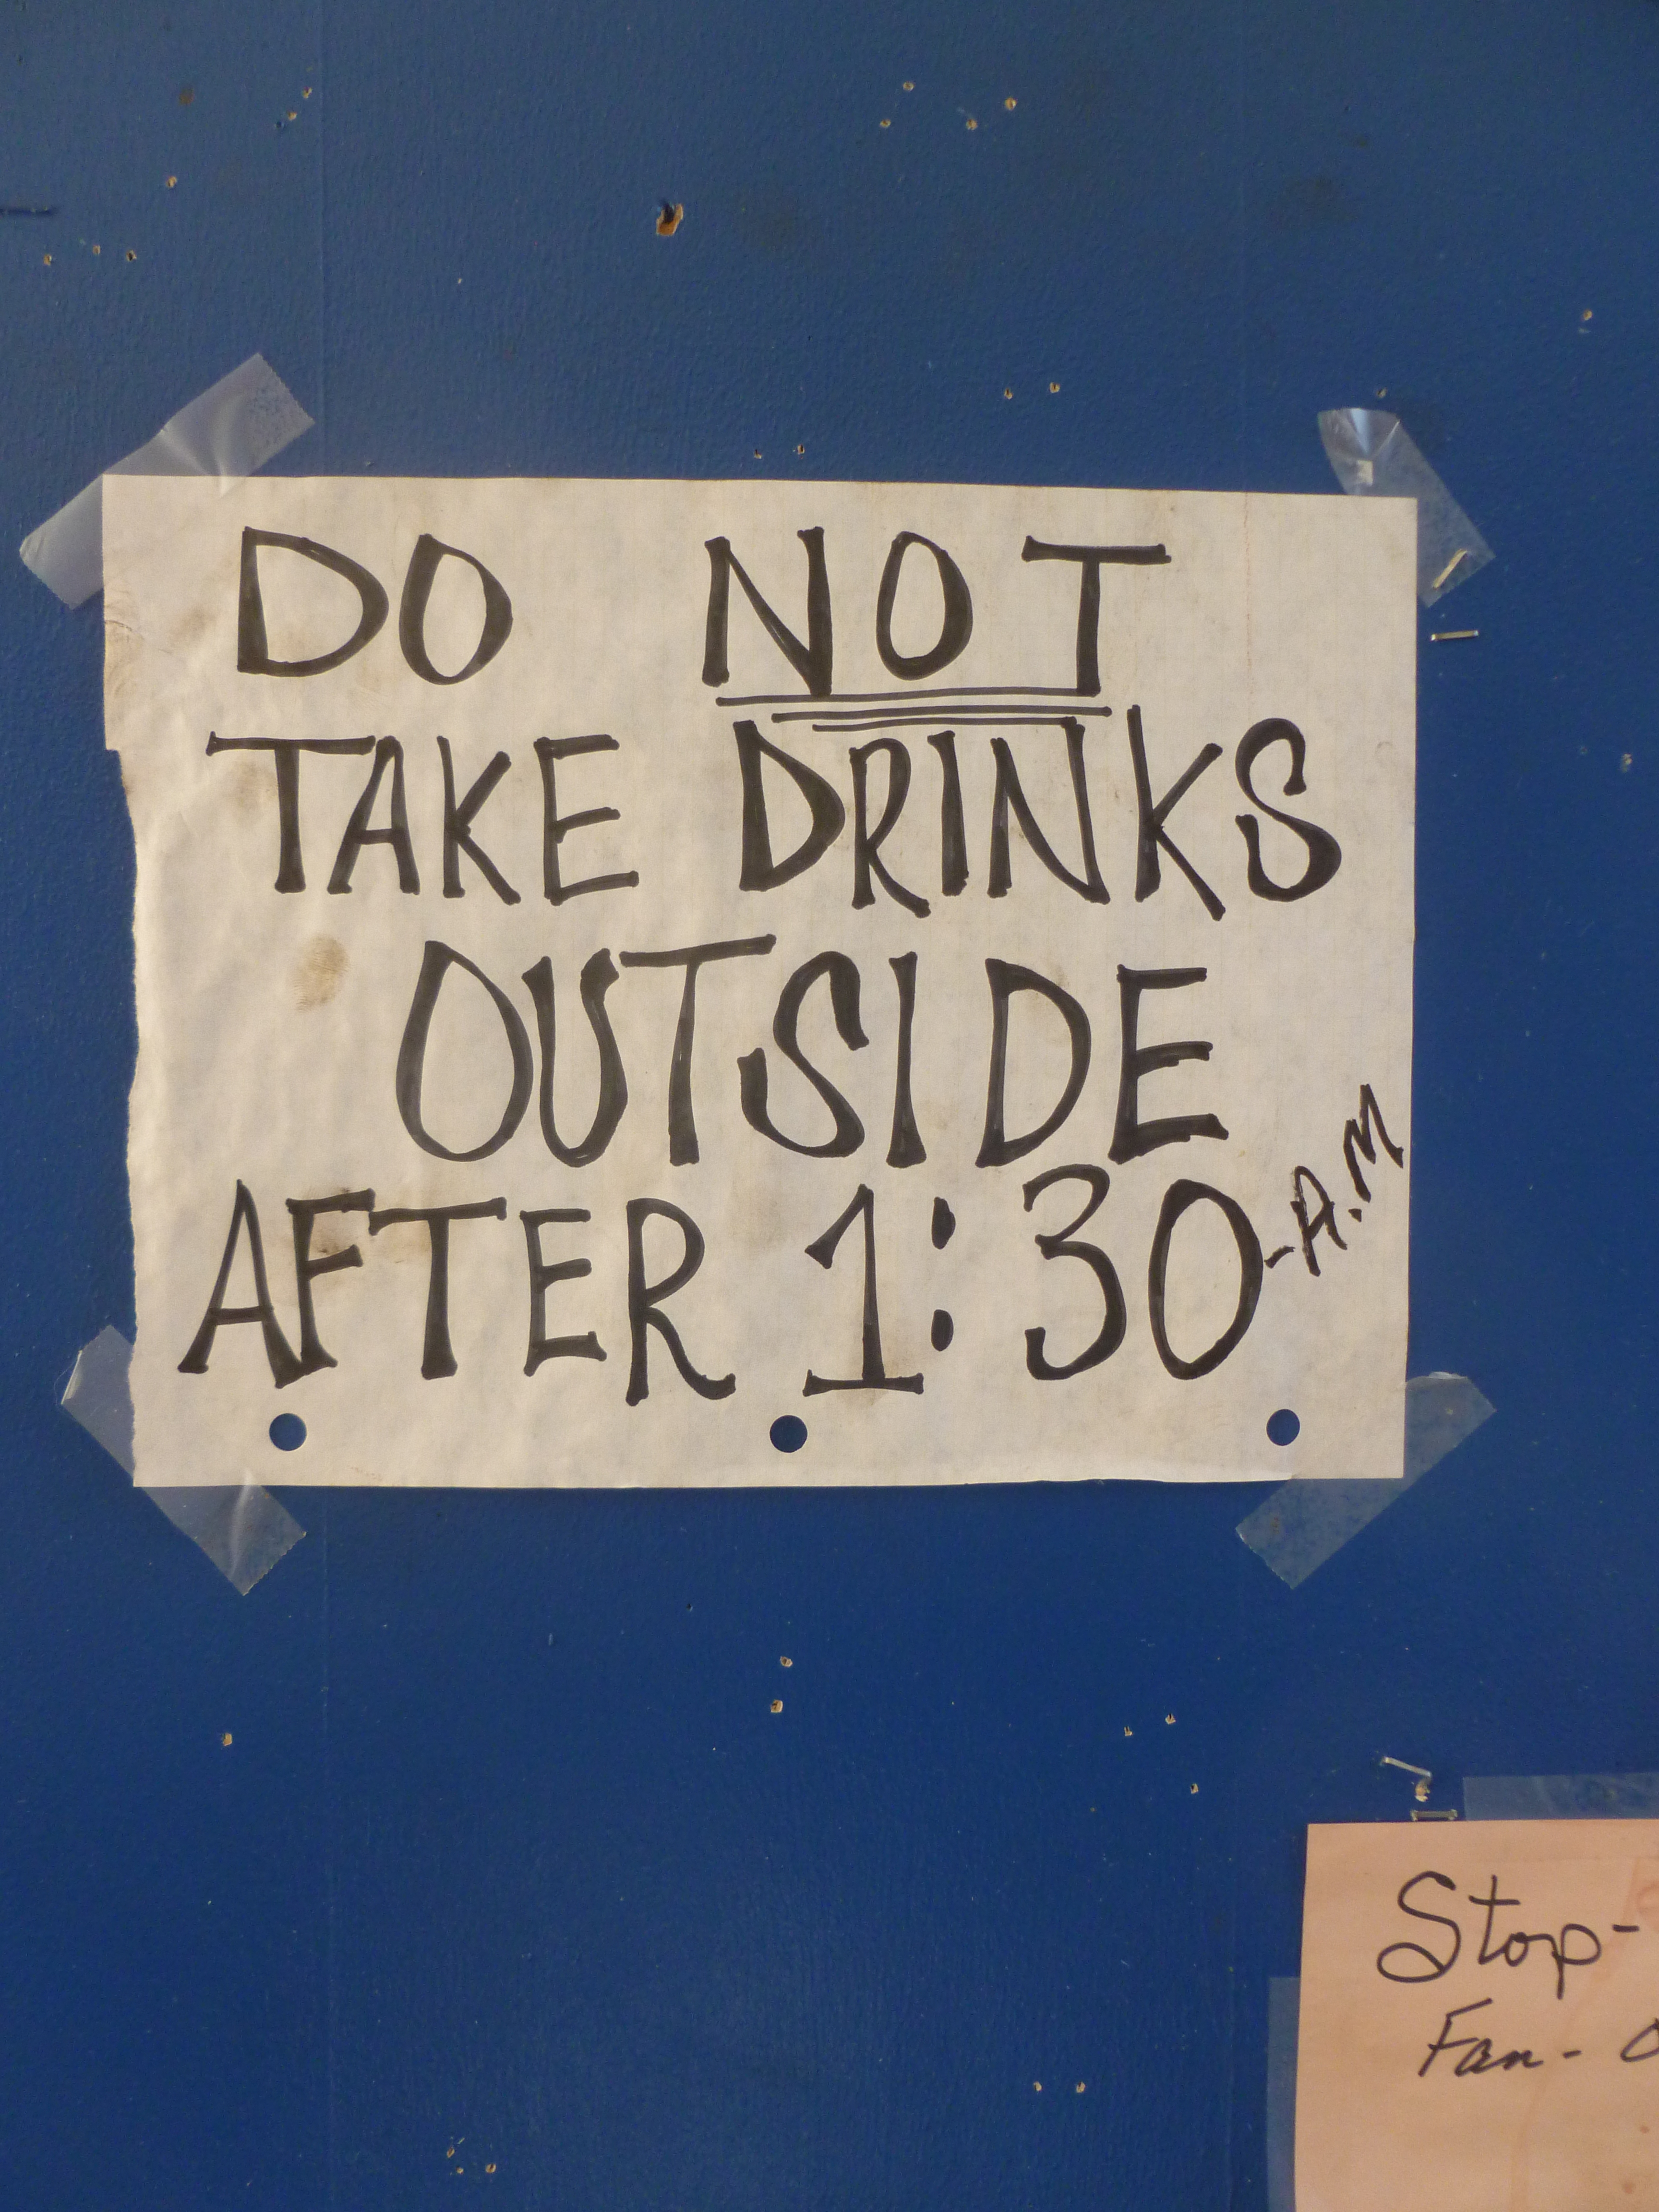 DO NOT
TAKE DRINKS
OUTSIDE
AFTER 1:30-A.M
Stop-
Fan-